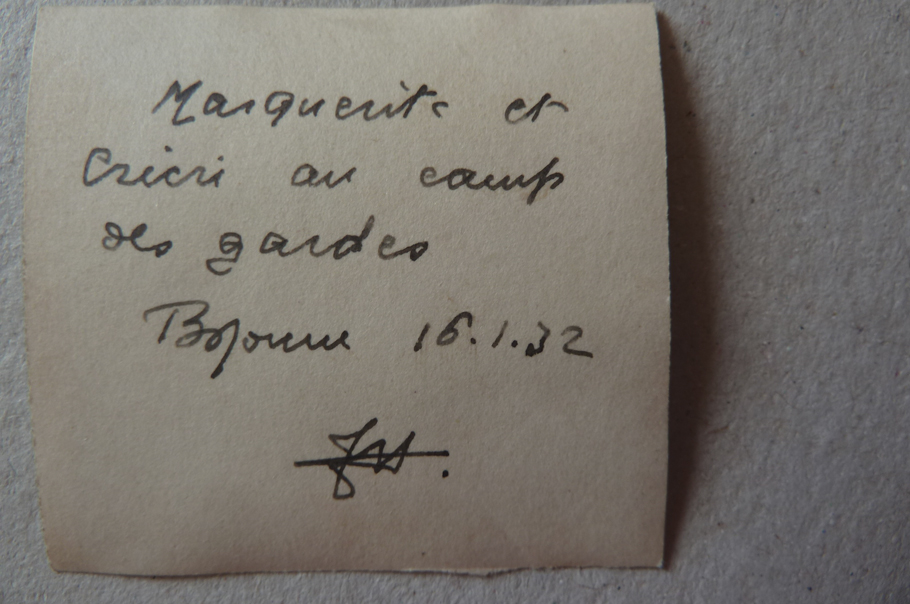 Marguerite et
Cricri au camp
des gardes
Bojoune 16.1.32